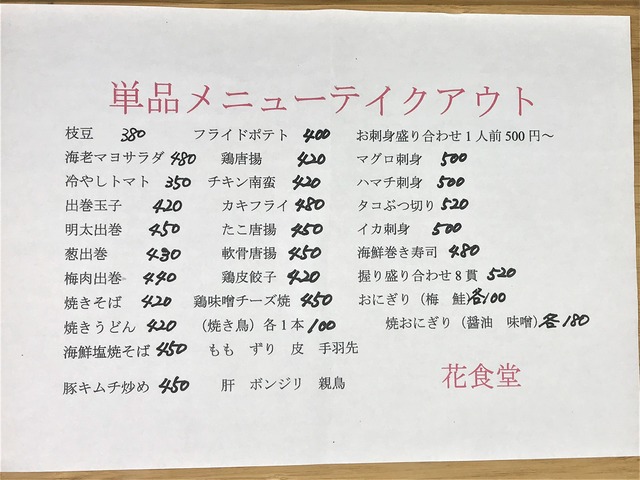 単品メニューテイクアウト
枝豆 380 フライドポテト 400 お刺身盛り合わせ1人前500円～
海老マヨサラダ 480 鶏唐揚 420 マグロ刺身 500
冷やしトマト 350 チキン南蛮 420 ハマチ刺身 500
出巻玉子 420 カキフライ 480 タコぶつ切り 520
明太出巻 450 たこ唐揚 450 イカ刺身 500
葱出巻 430 軟骨唐揚 450 海鮮巻き寿司 480
梅肉出巻 440 鶏皮餃子 420 握り盛り合わせ8貫 520
焼きそば 420 鶏味噌チーズ焼 450 おにぎり（梅 鮭）各100
焼きうどん 420 （焼き鳥）各1本 100 焼おにぎり（醤油 味噌）各180
海鮮塩焼そば 450 もも ずり 皮 手羽先
豚キムチ炒め 450 肝 ボンジリ 親鳥
花食堂